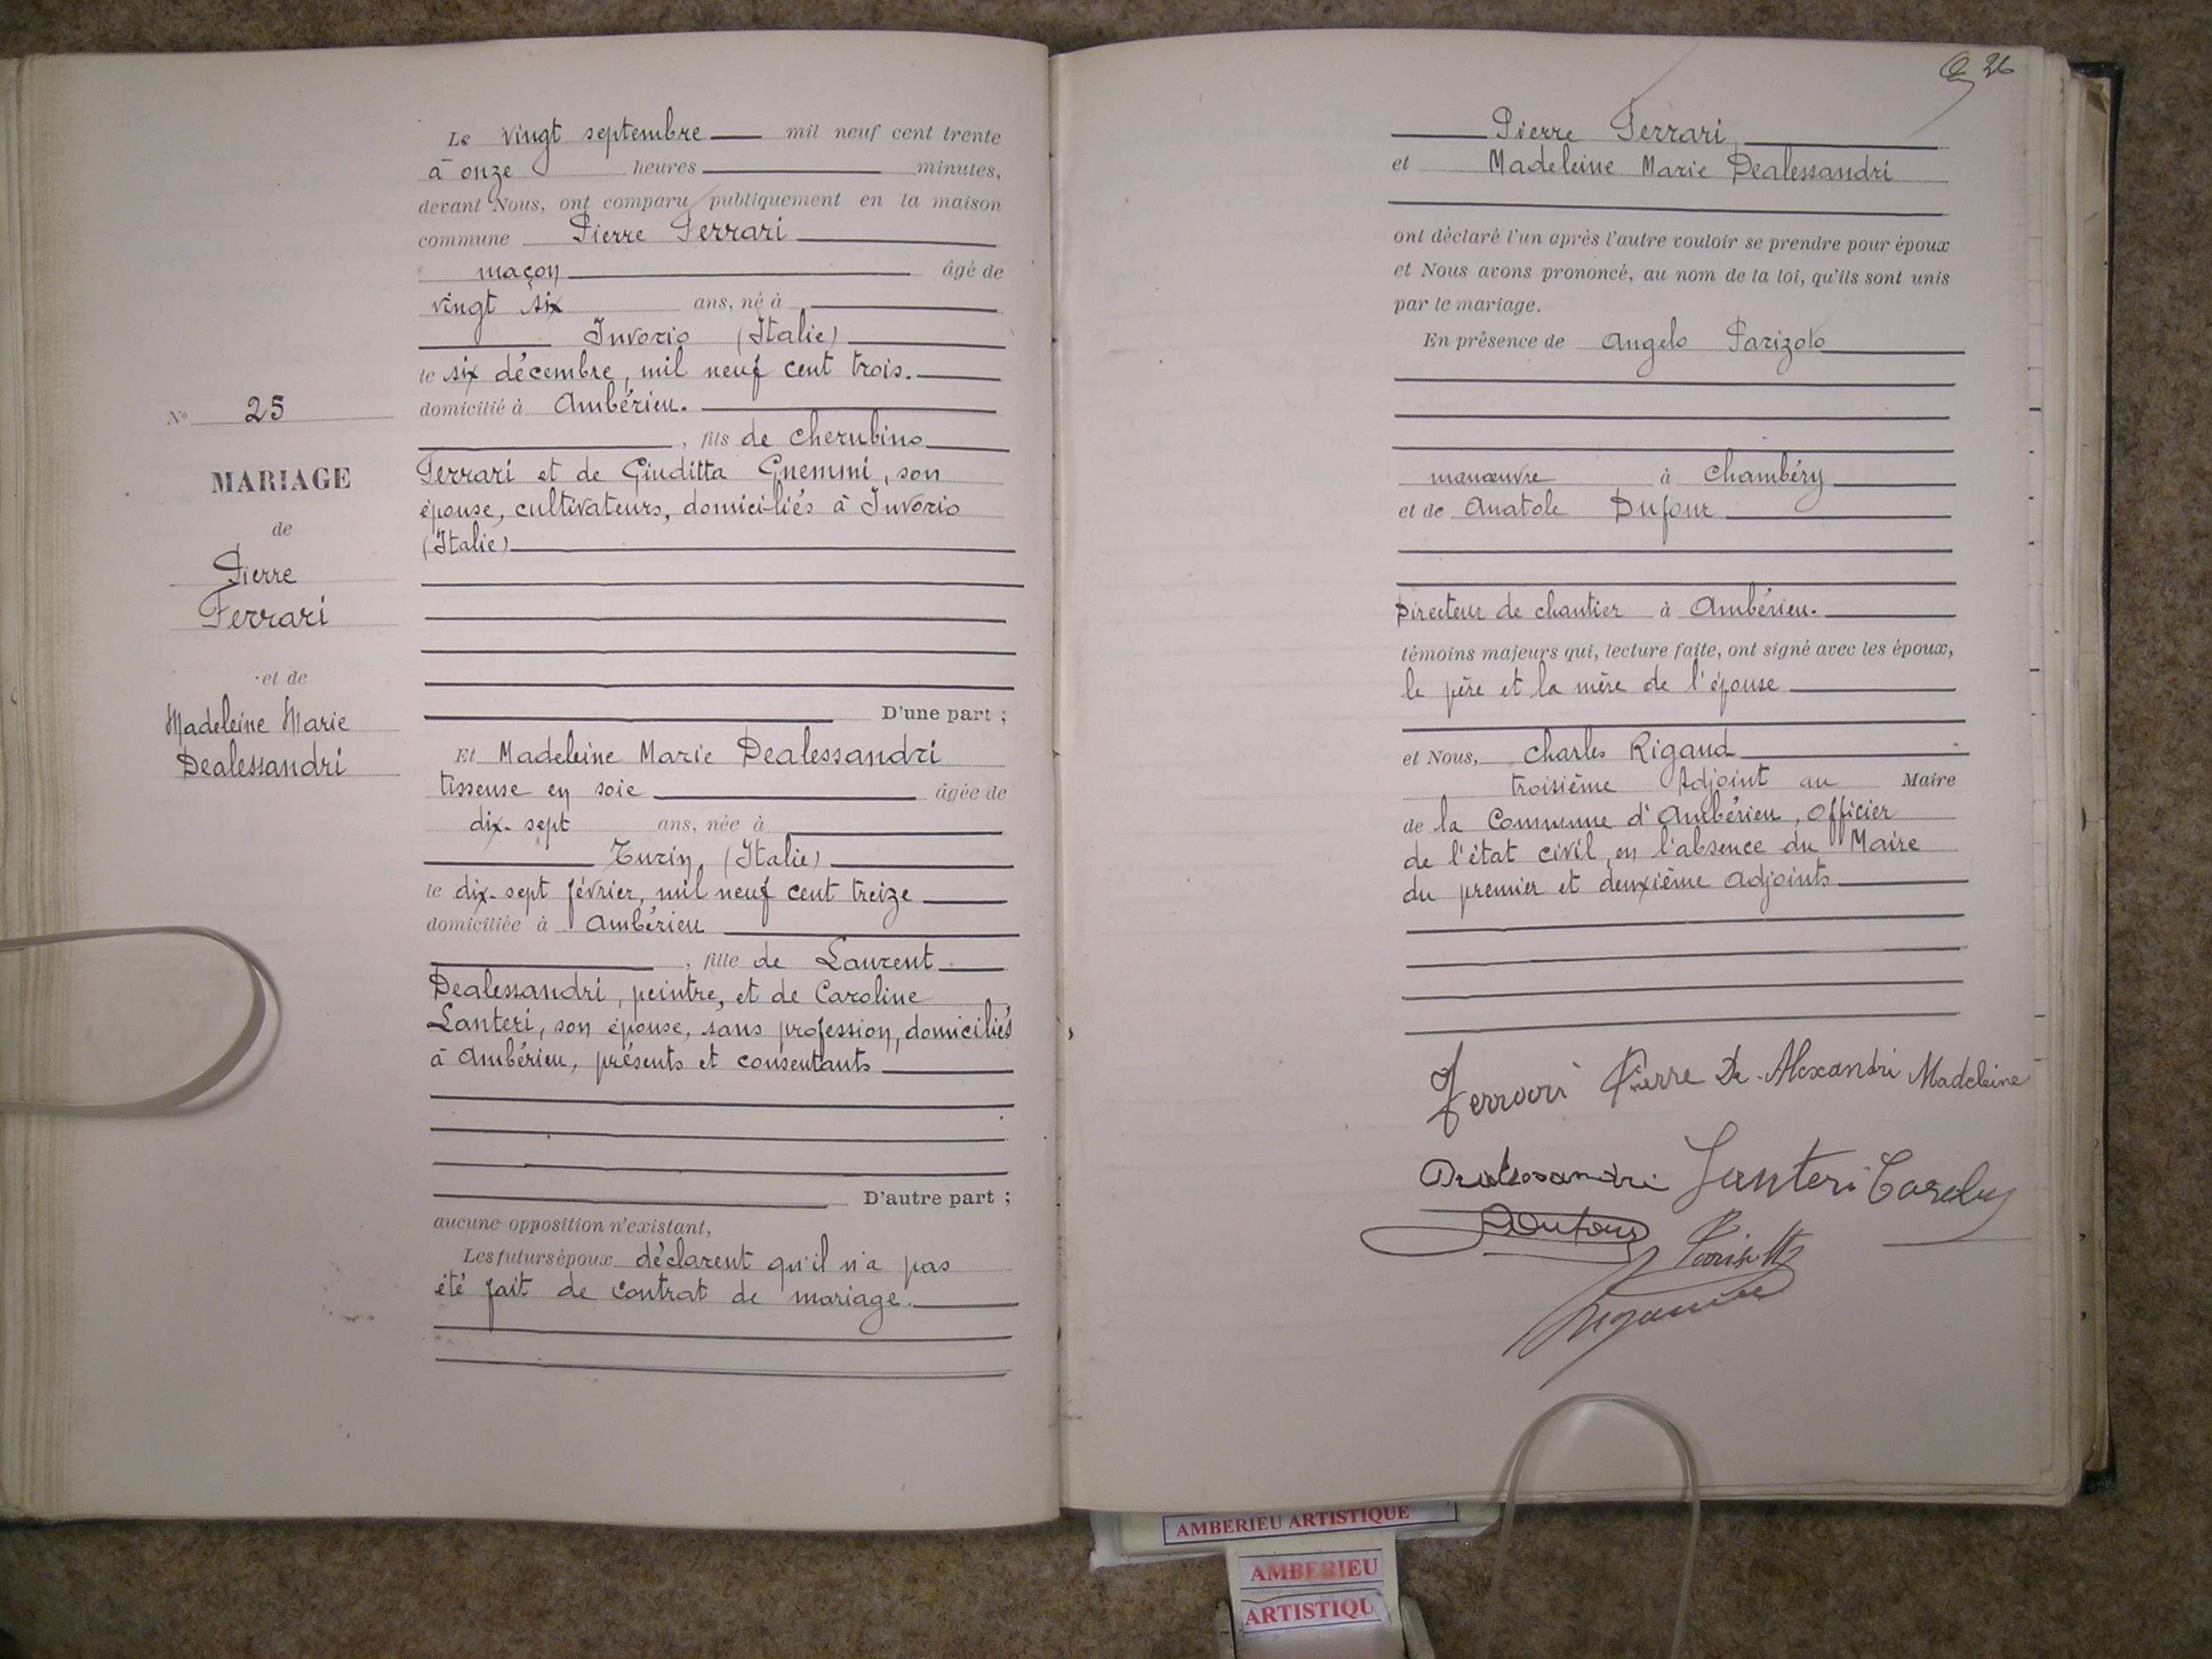 Le vingt septembre mil neuf cent trente
à onze heures minutes,
devant Nous, ont comparu publiquement en la maison
commune Pierre Ferrari
maçon âgé de
vingt six ans, né à
Invorio (Italie)
le six décembre, mil neuf cent trois.
domicilié à Ambérieu.
, fils de Cherubino
Ferrari et de Giuditta Gnemmi, son
épouse, cultivateurs, domiciliés à Invorio
(Italie)
D'une part ;
N° 25
MARIAGE
de
Pierre
Ferrari
et de
Madeleine Marie
Dealessandri
Et Madeleine Marie Dealessandri
tisseuse en soie âgée de
dix-sept ans, née à
Turin, (Italie)
le dix-sept février, mil neuf cent treize
domiciliée à Ambérieu
, fille de Laurent
Dealessandri, peintre, et de Caroline
Lanteri, son épouse, sans profession, domiciliés
à Ambérieu, présents et consentants
D'autre part ;
aucune opposition n'existant,
Les futurs époux déclarent qu'il n'a pas
été fait de contrat de mariage.
26
Pierre Ferrari
et Madeleine Marie Dealessandri
ont déclaré l'un après l'autre vouloir se prendre pour époux
et Nous avons prononcé, au nom de la loi, qu'ils sont unis
par le mariage.
En présence de Angelo Parizoto
manœuvre à Chambéry
et de Anatole Dufour
Directeur de chantier à Ambérieu.
témoins majeurs qui, lecture faite, ont signé avec les époux,
le père et la mère de l'épouse
et Nous, Charles Rigaud
troisième Adjoint au Maire
de la Commune d'Ambérieu, Officier
de l'état civil, en l'absence du Maire
du premier et deuxième adjoints
Ferrari Pierre De-Alexandri Madeleine
Dealessandri Lanteri
Dufour
AMBERIEU ARTISTIQUE
AMBERIEU
ARTISTIQU